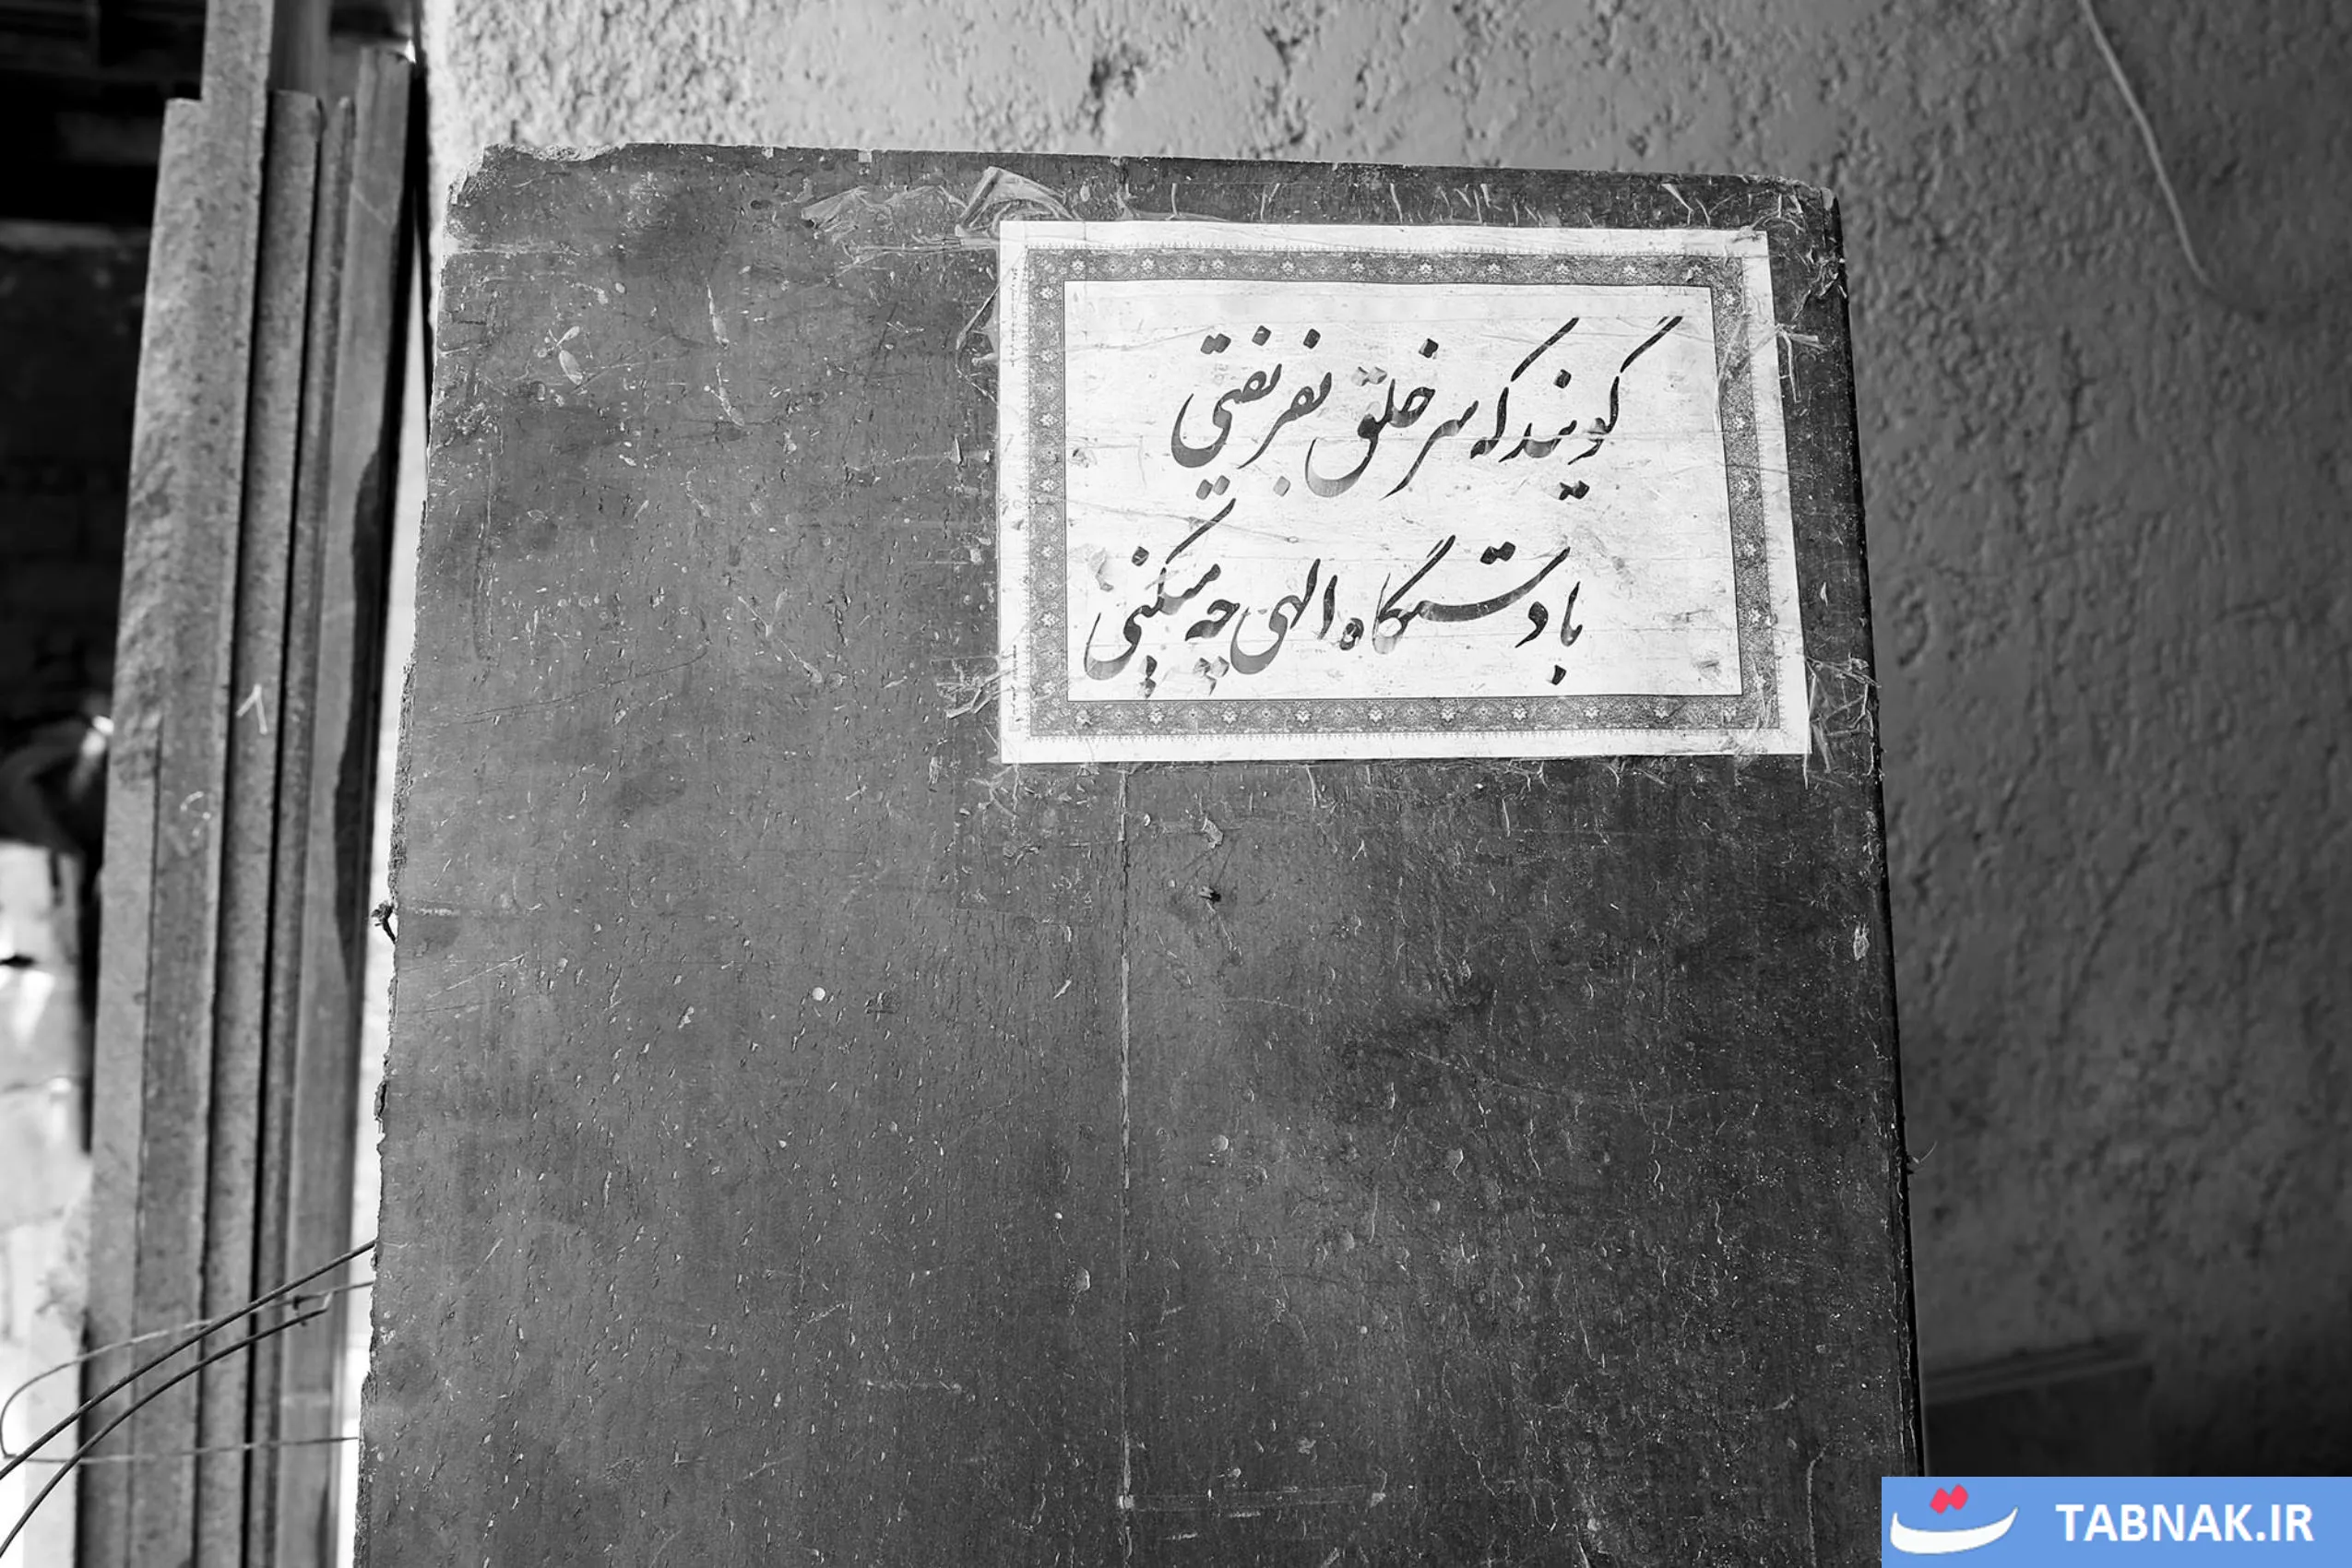 گویند که سر خلق بفریفتی
با دستگاه الهی چه میکنی
TABNAK.IR